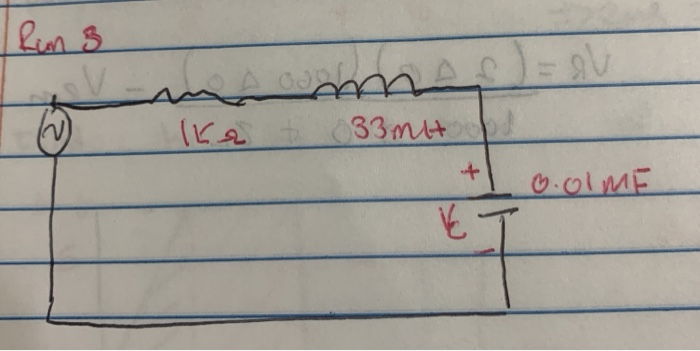 Run 3
1KΩ
33mH
+
0.01MF
Vc
-